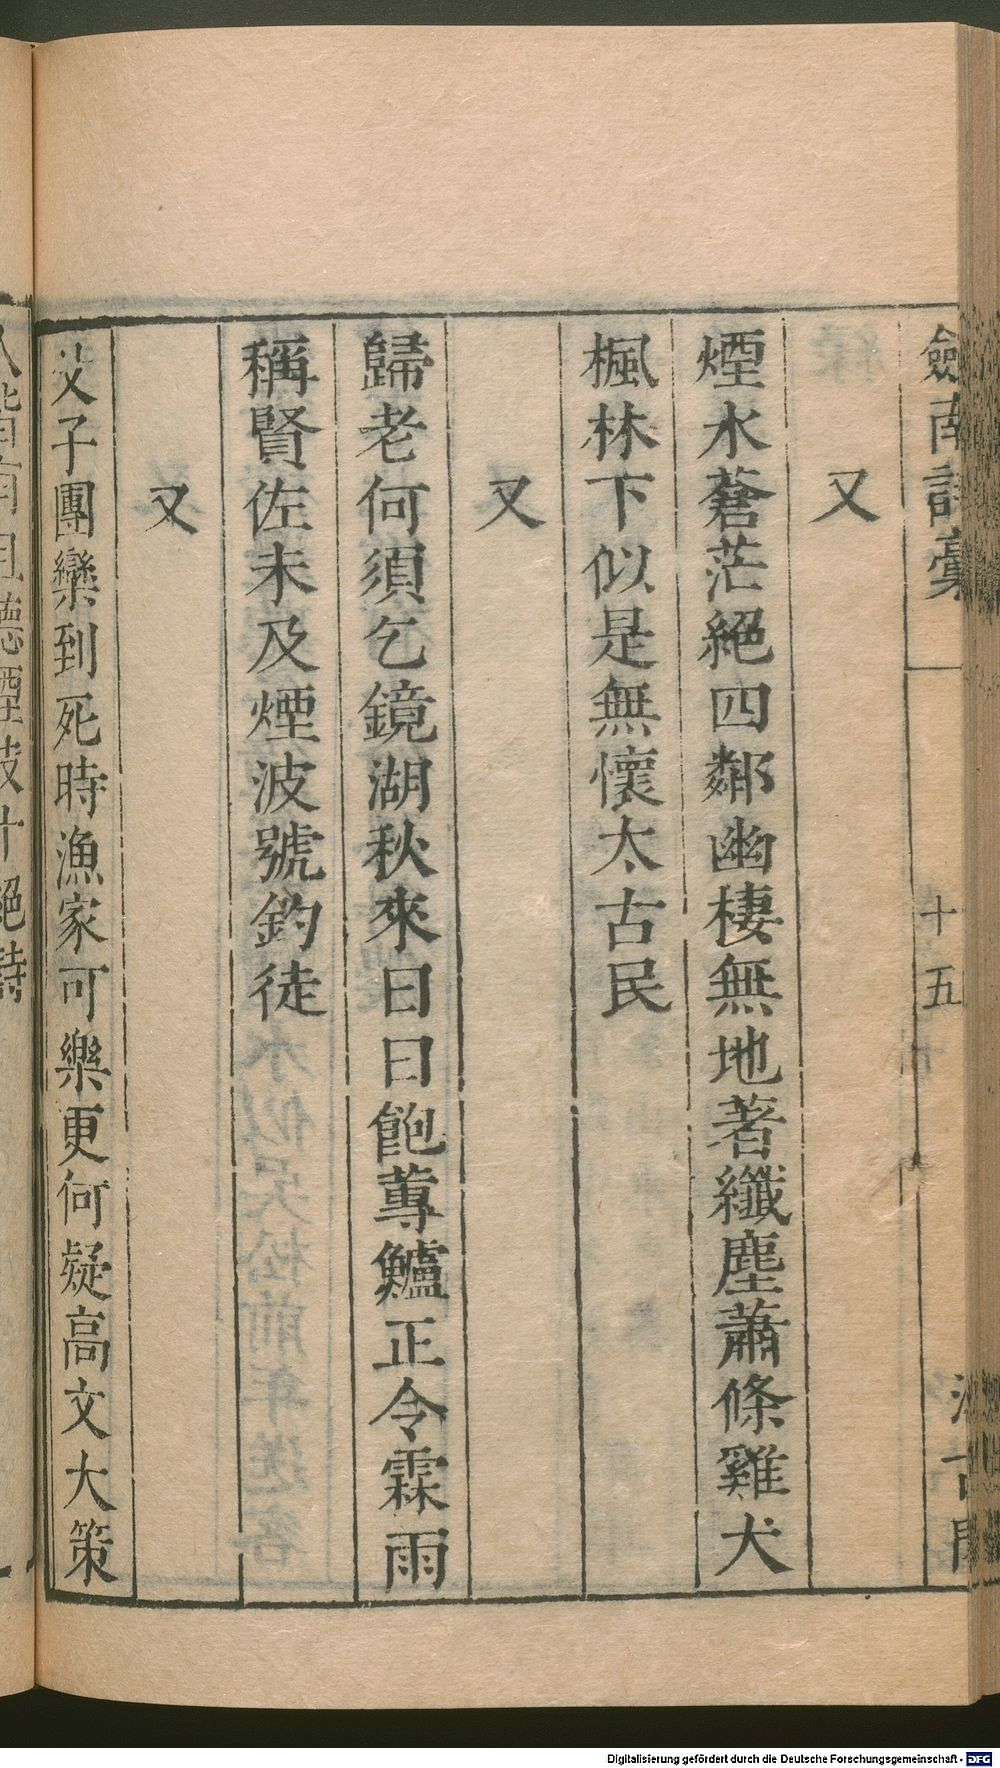 劒南詩稾
十五
又
煙水蒼茫絕四鄰幽棲無地著纖塵蕭條雞犬
楓林下似是無懷太古民
又
歸老何須乞鏡湖秋來日日飽蓴鱸正令霖雨
稱賢佐未及煙波號釣徒
又
父子團欒到死時漁家可樂更何疑高文大策
Digitalisierung gefördert durch die Deutsche Forschungsgemeinschaft - DFG